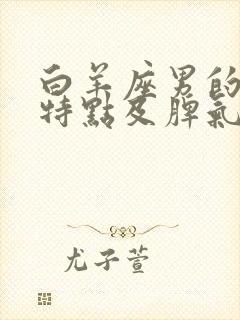 白羊座男的
特點及脾氣
尤子萱